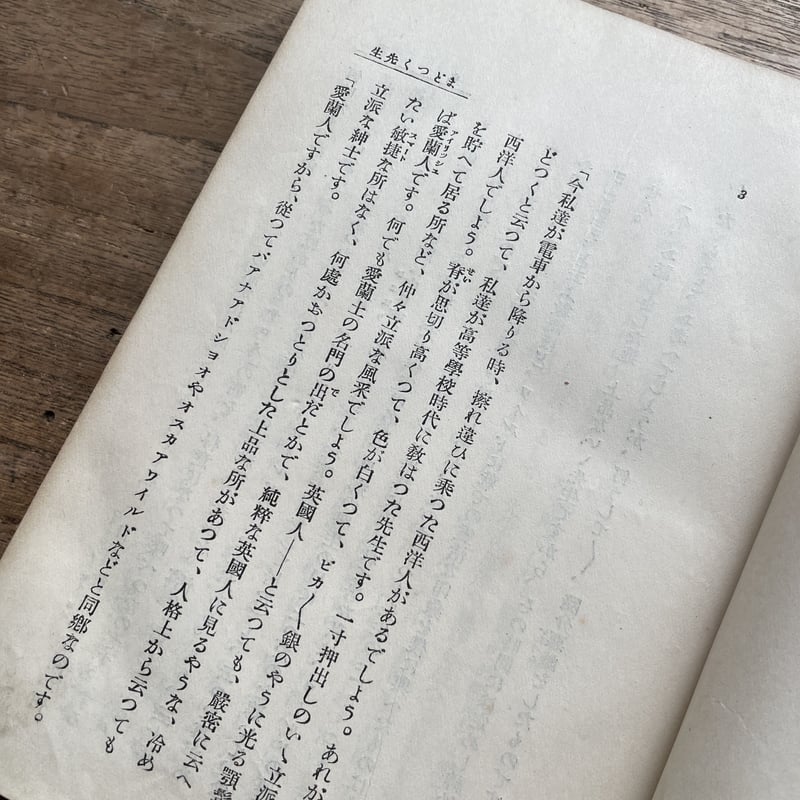 3
まどつく先生
「今私達が電車から降りる時、擦れ違ひに乗つた西洋人があるでしよう。あれが
どつくと云つて、私達が高等學校時代に教はつた先生です。一寸押出しのいゝ立派
西洋人でしよう。脊が思切り高くつて、色が白くつて、ピカ〳〵銀のやうに光る顎鬚
を貯へて居る所など、仲々立派な風采でしよう。英國人――と云つても、嚴密に云へ
ば愛蘭人です。何でも愛蘭土の名門の出だとかで、純粹な英國人に見るやうな、冷め
たい敏捷な所はなく、何處かおつとりとした上品な所があつて、人格上から云つても
立派な紳士です。
「愛蘭人ですから、從つてバアナアドショオやオスカアワイルドなどと同鄕なのです。